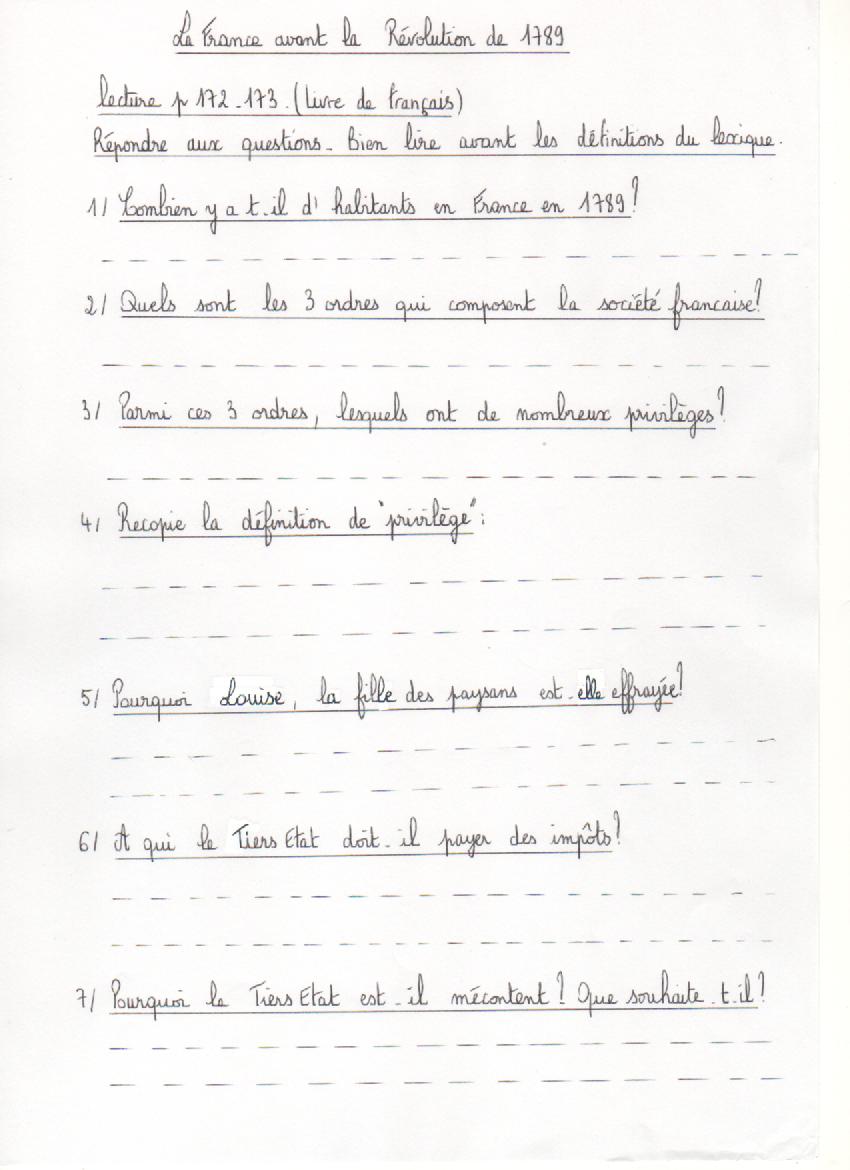 La France avant la Révolution de 1789
lecture p 172-173. (Livre de français)
Répondre aux questions. Bien lire avant les définitions du lexique.
1/ Combien y a t-il d'habitants en France en 1789?
2/ Quels sont les 3 ordres qui composent la société francaise?
3/ Parmi ces 3 ordres, lesquels ont de nombreux privilèges?
4/ Recopie la définition de "privilège":
5/ Pourquoi Louise, la fille des paysans est-elle effrayée?
6/ A qui le Tiers Etat doit-il payer des impôts?
7/ Pourquoi le Tiers Etat est-il mécontent? Que souhaite-t-il?